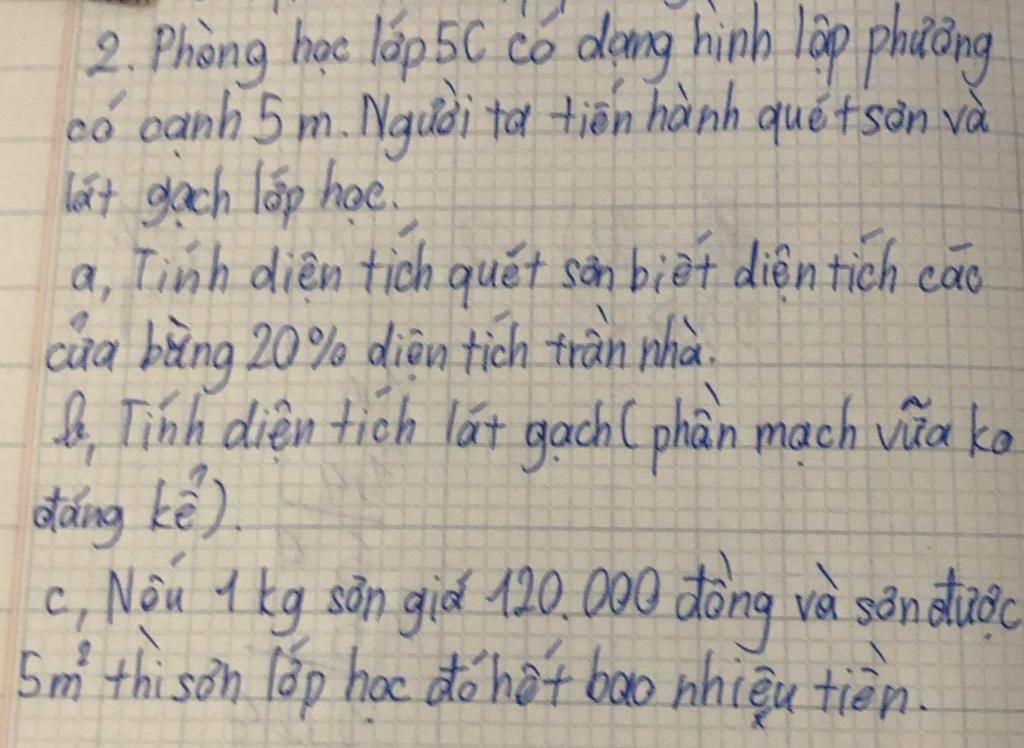 2. Phòng học lớp 5C có dạng hình lập phương
có cạnh 5 m. Người ta tiến hành quét sơn và
lát gạch lớp học.
a, Tính diện tích quét sơn biết diện tích các
cửa bằng 20% diện tích trần nhà.
b, Tính diện tích lát gạch (phần mạch vữa ko
đáng kể).
c, Nếu 1 kg sơn giá 120.000 đồng và sơn được
5m² thì sơn lớp học đó hết bao nhiêu tiền.